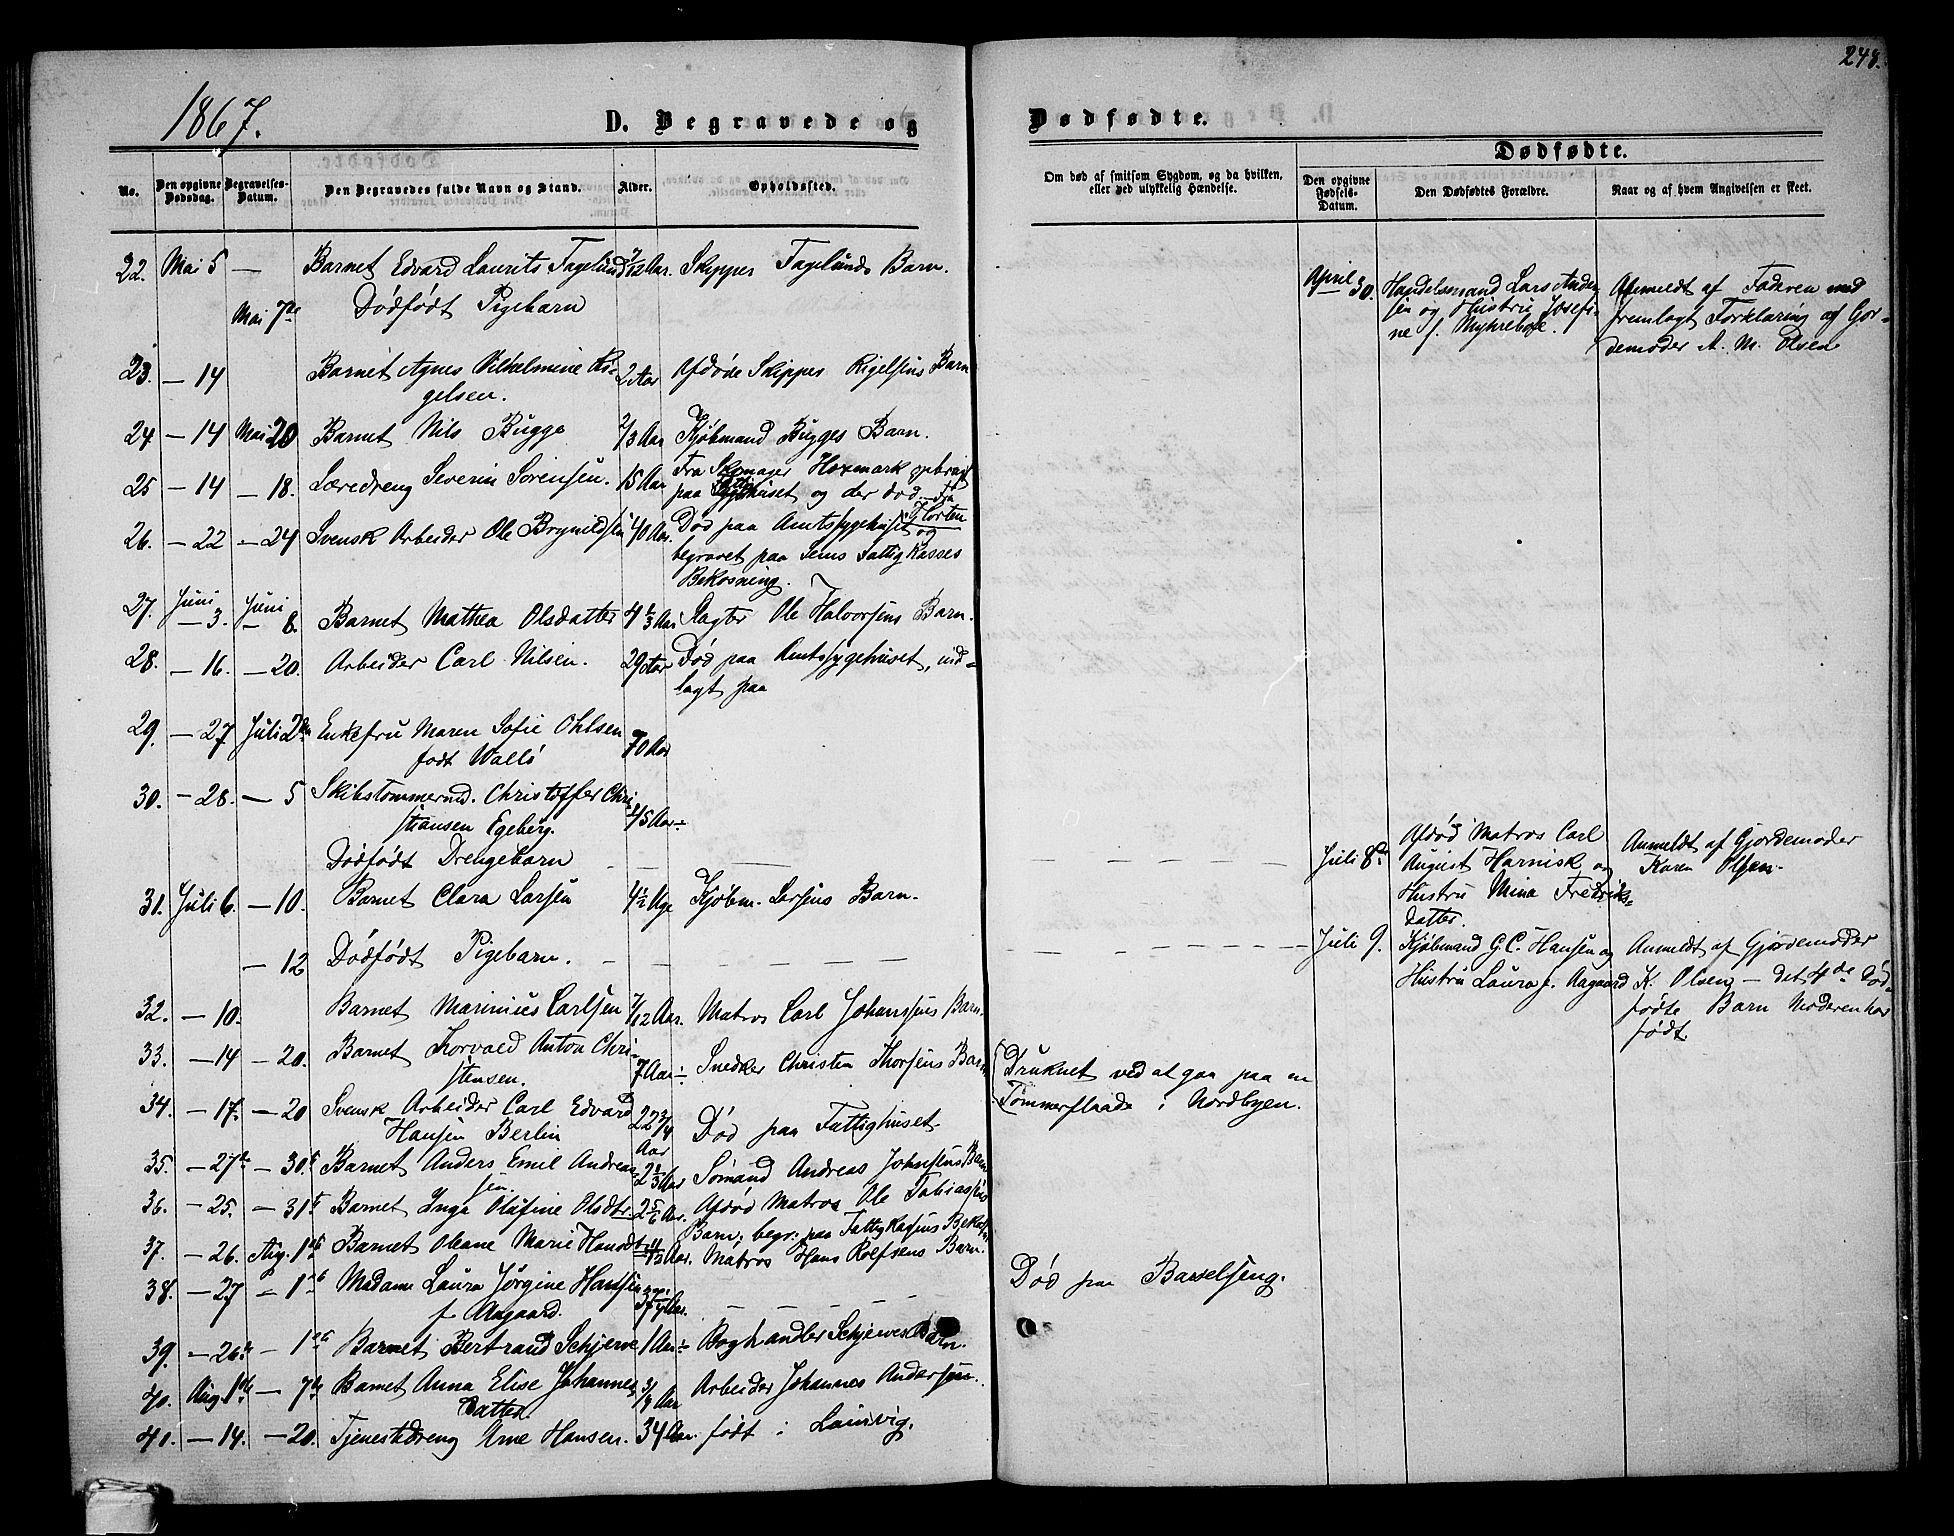 248.
1867.
D. Begravede og
Dødfødte.
No.
Den opgivne Dødsdag.
Begravelses-Datum.
Den Begravedes fulde Navn og Stand.
Alder.
Opholdssted.
Om død af smitsom Sygdom, og da hvilken, eller ved ulykkelig Hændelse.
Dødfødte.
Den opgivne Fødsels-Datum.
Den Dødfødtes Forældre.
Naar og af hvem Angivelsen er skeet.
22. Mai 5 — Barnet Edvard Laurits Fagelund 7/12 Aar. Skipper Fagelunds Barn.
Mai 7de Dødfødt Pigebarn
April 30. Handelsmand Lars Ander-
sen og Hustru Josefi-
ne f. Myhrebøe.
Anmeldt af Faderen med
fremlagt Forklaring af Gjor-
demoder A. M. Olsen
23. — 14 Barnet Agnes Vilhelmine Ri-
gelsen. 2 Aar Afdøde Skipper Rigelsens Barn
24 — 14 Mai 20 Barnet Nils Bugge 2/3 Aar Kjøbmand Bugges Barn.
25 — 14 — 18. Læredreng Severin Sørensen. 15 Aar Fra Skomager Hoxmark opbragt
paa Sygehuset og der død.
26. — 22 — 24 Svensk Arbeider Ole Brynildsen 40 Aar. Død paa Amtssygehuset fra Horten og
begravet paa Sems Fattigkasses
Bekosning.
27. Juni 3. Juni 8. Barnet Mathea Olsdatter 4 1/3 Aar Slagter Ole Halvorsens Barn.
28. — 16. — 20. Arbeider Carl Nilsen. 29 Aar Død paa Amtssygehuset, ind-
lagt paa
29. — 27 Juli 2den Enkefru Maren Sofie Ohlsen
født Walløe 70 Aar
30. — 28. — 5 Skibstømmermd. Christoffer Chri-
stiansen Egeberg. 45 Aar
Dødfødt Drengebarn — —
Juli 8de Afdød Matros Carl
August Harnisk og
Hustru Mina Fredriks-
datter.
Anmeldt af Gjordemoder
Karen Olsen.
31. Juli 6. — 10. Barnet Clara Larsen 4 1/2 Uge Kjøbm. Larsens Barn.
— 12 Dødfødt Pigebarn. — — — — — —
Juli 9. Kjøbmand G. C. Hansen og
Hustru Laura f. Aagaard
Anmeldt af Gjordemoder
K. Olsen — det 4de Død-
fødte Barn Moderen har
født.
32. — 10. Barnet Marinius Carlsen 7/12 Aar. Matros Carl Johanssens Barn.
33. — 14 — 20. Barnet Thorvald Anton Chri-
stensen. 7 Aar Snedker Christen Thorsens Barn
Druknet ved at gaa paa en
Tømmerflaade i Nordbyen.
34. — 17. — 20 Svensk Arbeider Carl Edvard
Hansen Berlin 22 3/4 Aar Død paa Fattighuset.
35. — 27de — 30te Barnet Anders Emil Andreas-
sen. 2 2/3 Aar Sømand Andreas Johnsens Barn
36. — 25. — 31te Barnet Inga Olufine Olsdtr. 2 5/6 Aar. Afdød Matros Ole Tobiassens
Barn; begr. paa Fattigkassens Bekostn.
37. — 26. Aug. 1ste Barnet Oleane Marie Hansdtr. 11/12 Aar. Matros Hans Rolfsens Barn.
38. — 27 — 1ste Madame Laura Jørgine Hansen
f. Aagaard. Aar. — — — —
Død paa Barselseng.
39. — 26de — 1ste Barnet Bertrand Schjerve 1 Aar Boghandler Schjerves Barn.
40. Aug. 1ste — 7de Barnet Anna Elise Johannes-
datter. 3/4 Aar Arbeider Johannes Andersen.
40. — 14. — 20. Tjenestedreng Arne Hansen. 34 Aar. født i Laurvig.